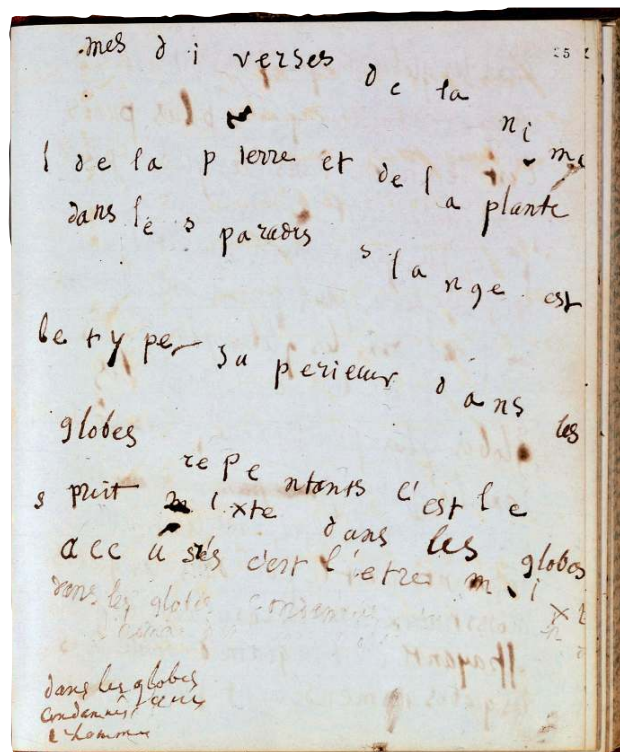 mes diverses de la
25
nima
l de la pierre et de la plante
dans les paradis
s l ange est
le type superieur dans les
globes
repentants c'est l e
s prit mixte dans les globes
accusés c'est l'etre mixt
dans les globes condamnés
dans les globes
condamnés
l'homme